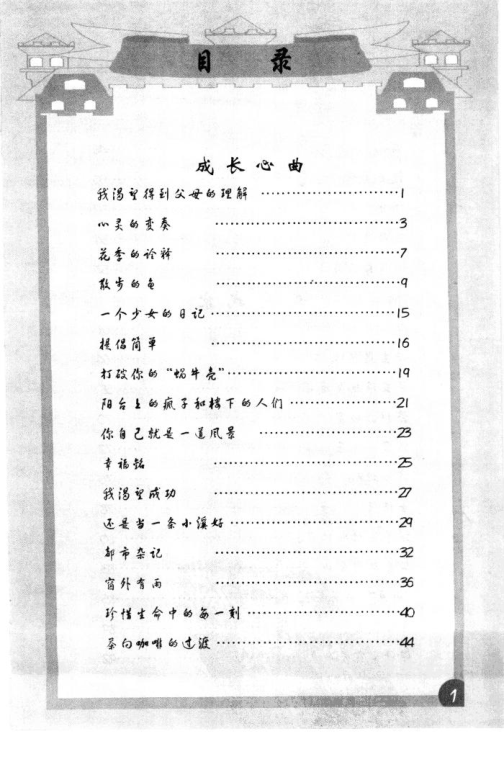 目 录
成长心曲
我渴望得到父母的理解 ··························1
心灵的变奏 ··························3
花季的诠释 ··························7
散步的鱼 ··························9
一个少女的日记 ··························15
提倡简单 ··························16
打破你的“蜗牛壳” ··························19
阳台上的疯子和楼下的人们 ··························21
你自己就是一道风景 ··························23
幸福铭 ··························25
我渴望成功 ··························27
还是当一条小溪好 ··························29
都市杂记 ··························32
窗外有雨 ··························36
珍惜生命中的每一刻 ··························40
茶向咖啡的过渡 ··························44
1